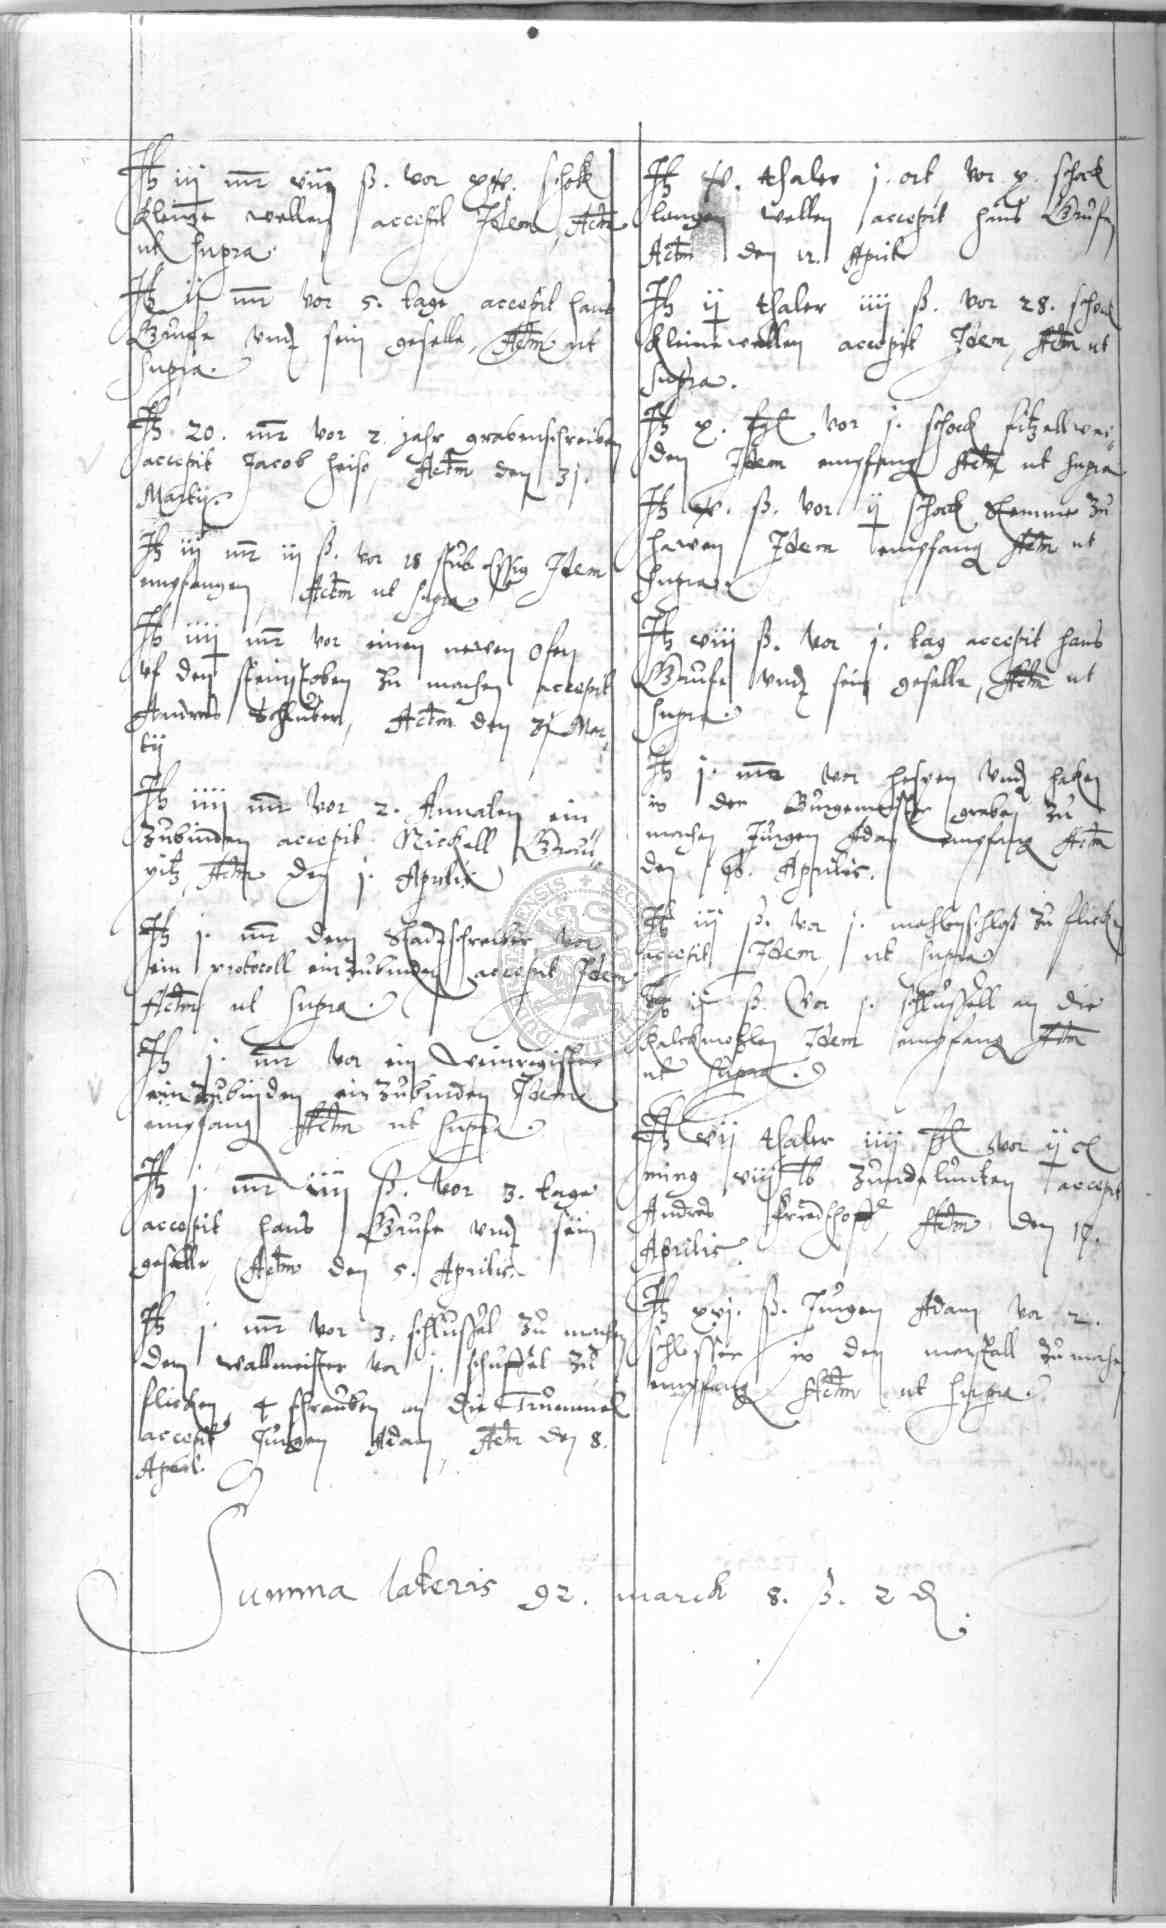 It iij mr viij ß. vor xv. schock
kleine wellen accepit Idem, Actm
ut supra.
It ij mr vor 5. tage accepit hans
Gruse vnd sein geselle, Actm ut
supra.
It 20. mr vor 2. jahr grabenschreiben
accepit Jacob heise, Actm den 31.
Martij.
It iij mr iij ß. vor 18 stub essig Idem
empfangen, Actm ut supra
It iiij mr vor einen newen ofen
vf den zu machen accepit
Andreas Actm den 31 Mar„
tij
It iiij mr vor 2. Annalen ein
zubinden accepit Nickell
Actm den j. Aprilis
It j. mr dem Stadtschreiber vor
ein protocoll einzubinden accepit Idem
Actm ut supra.
It j. mr vor ein weinregister
einzubinden einzubinden Idem
empfang Actm ut supra.
It j. mr iiij ß. vor 3. tage
accepit hans Gruse vnd sein
geselle, Actm den 5. Aprilis.
It j. mr vor 3. schlussel zu machen
dem wallmeister vor j. zu
flicken, 4 schrauben an die Trummel
accepit Jurgen Adam, Actm den 8.
April.
It xv. thaler j. ort, vor x. schock
langen wellen accepit hans Grusen
Actm den 12. April
It ij thaler iiij ß. vor 28. schock
kleine wellen accepit Idem, Actm ut
supra.
It x. vor j. schock fitzellwei„
den Idem empfang Actm ut supra
It xv. ß. vor ij schock Stemme zu
hawen Idem empfang Actm ut
supra.
It viij ß. vor j. tag accepit hans
Gruse vnd sein geselle, Actm ut
supra.
It j. mr vor hespen vnd haken
in der Burgemeister graben zu
machen Jurgen Adam empfang Actm
den 16. Aprilis.
It iij ß. vor j. zu flicken
accepit Idem, ut supra
It ij ß. vor j. schlussell an die
kalckmohlen Idem empfang Actm
ut supra.
It vij thaler iiij vor ij
viij lb zundelunten accepit
Andres Friedhoff, Actm den 17.
Aprilis
It xvj. ß. Jurgen Adam vor 2.
schlosser in den marstall zu machen
empfang Actm ut supra.
Summa lateris 92. march 8. ß. 2 ₰.